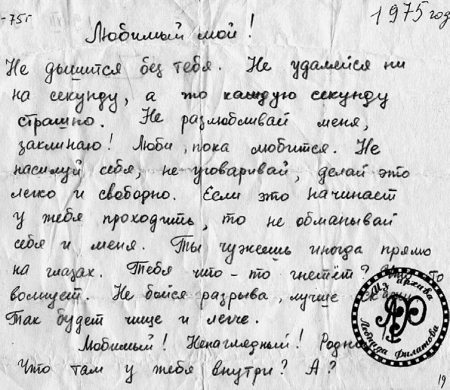 -75г
1975 год
Любимый мой!
Не дышится без тебя. Не удаляйся ни
на секунду, а то каждую секунду
страшно. Не разлюбливай меня,
заклинаю! Люби, пока любится. Не
насилуй себя, не уговаривай, делай это
легко и свободно. Если это начинает
у тебя проходить, то не обманывай
себя и меня. Ты чужеешь иногда прямо
на глазах. Тебя что-то гнетёт?
волнует. Не бойся разрыва, лучше
Так будет чище и легче.
Любимый! Ненаглядный!
Что там у тебя внутри? А?
Из архива
Леонида Филатова
19